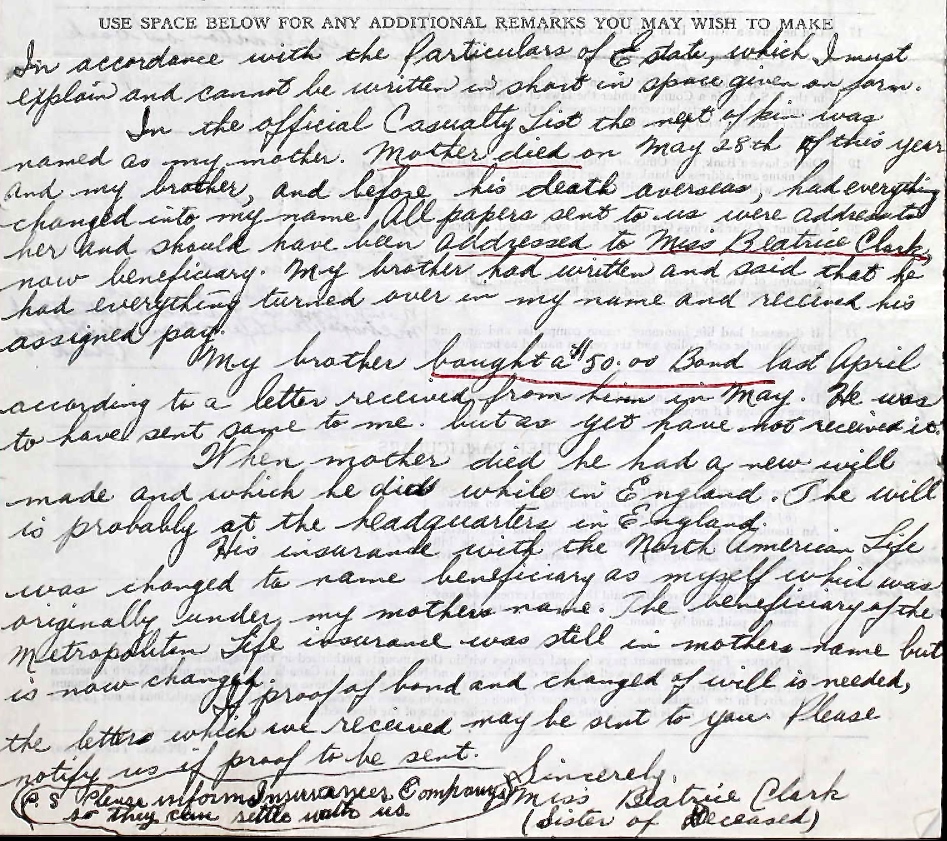 USE SPACE BELOW FOR ANY ADDITIONAL REMARKS YOU MAY WISH TO MAKE
In accordance with the Particulars of Estate, which I must
explain and cannot be written in short in space given on form.
In the official Casualty List the next of kin was
named as my mother. Mother died on May 28th of this year
and my brother, and before his death overseas, had everything
changed into my name. All papers sent to us were address to
her and should have been addressed to Miss Beatrice Clark,
now beneficiary. My brother had written and said that he
had everything turned over in my name and received his
assigned pay.
My brother bought a $50.00 Bond last April
according to a letter received from him in May. He was
to have sent same to me. but as yet have not received it.
When mother died he had a new will
made and which he did while in England. The will
is probably at the headquarters in England.
His insurance with the North American Life
was changed to name beneficiary as myself which was
originally under my mothers name. The beneficiary of the
Metropolitan Life insurance was still in mothers name but
is now changed.
If proof of bond and changed of will is needed,
the letters which we received may be sent to you. Please
notify us if proof to be sent.
Sincerely,
Miss Beatrice Clark
(Sister of Deceased)
P.S Please inform Insurance Companys
so they can settle with us.